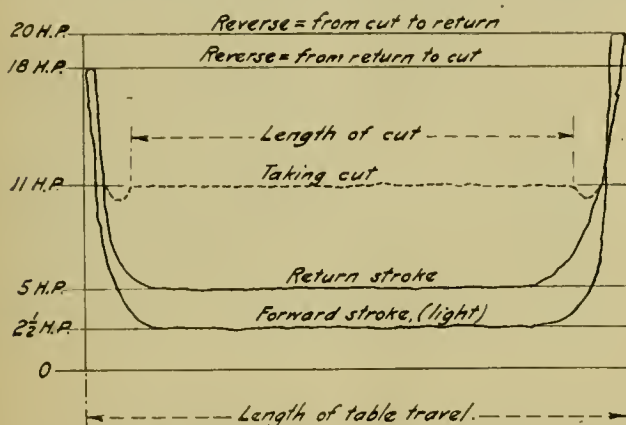 20 H.P.
Reverse = from cut to return
18 H.P.
Reverse = from return to cut
Length of cut
11 H.P.
Taking cut
5 H.P.
Return stroke
2½ H.P.
Forward stroke, (light)
0
Length of table travel.